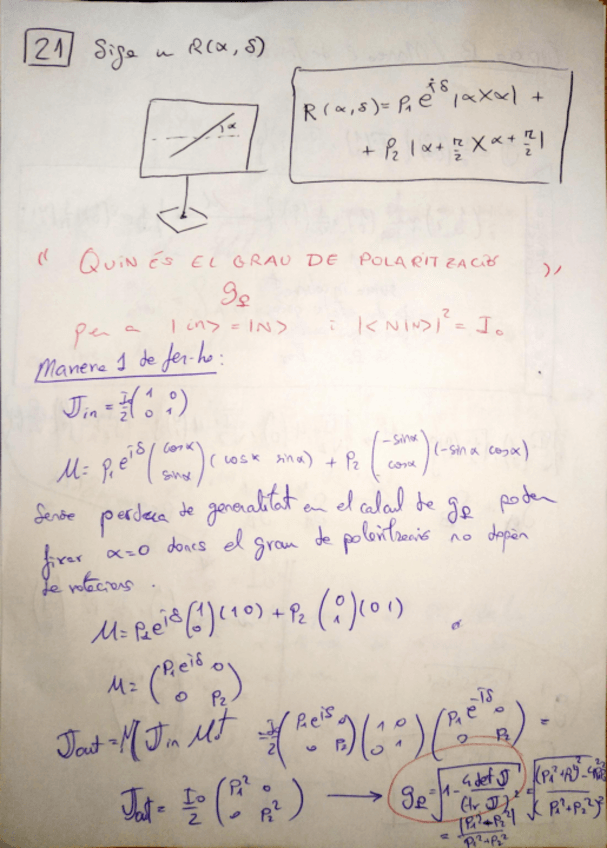 21 Sigui un R(α, δ)
α
R(α,δ)= P₁ e^{iδ} |α⟩⟨α| +
+ P₂ |α+π/2⟩⟨α+π/2|
" QUIN ÉS EL GRAU DE POLARITZACIÓ "
g_ℓ
per a |in⟩ = |N⟩ i |⟨N|N⟩|² = I₀
Manera 1 de fer-ho:
J_in = I₀/2 (1 0; 0 1)
M = P₁ e^{iδ} (cosα; sinα) (cosα sinα) + P₂ (-sinα; cosα) (-sinα cosα)
Sense perdua de generalitat en el calcul de g_ℓ podem
fixar α=0 doncs el grau de polarització no depèn
de rotacions.
M = P₁ e^{iδ} (1; 0) (1 0) + P₂ (0; 1) (0 1)
M = (P₁e^{iδ} 0; 0 P₂)
J_out = M J_in M† = I₀/2 (P₁e^{iδ} 0; 0 P₂) (1 0; 0 1) (P₁e^{-iδ} 0; 0 P₂) =
J_out = I₀/2 (P₁² 0; 0 P₂²) → g_ℓ = √(1 - 4 det J / (tr J)²) =